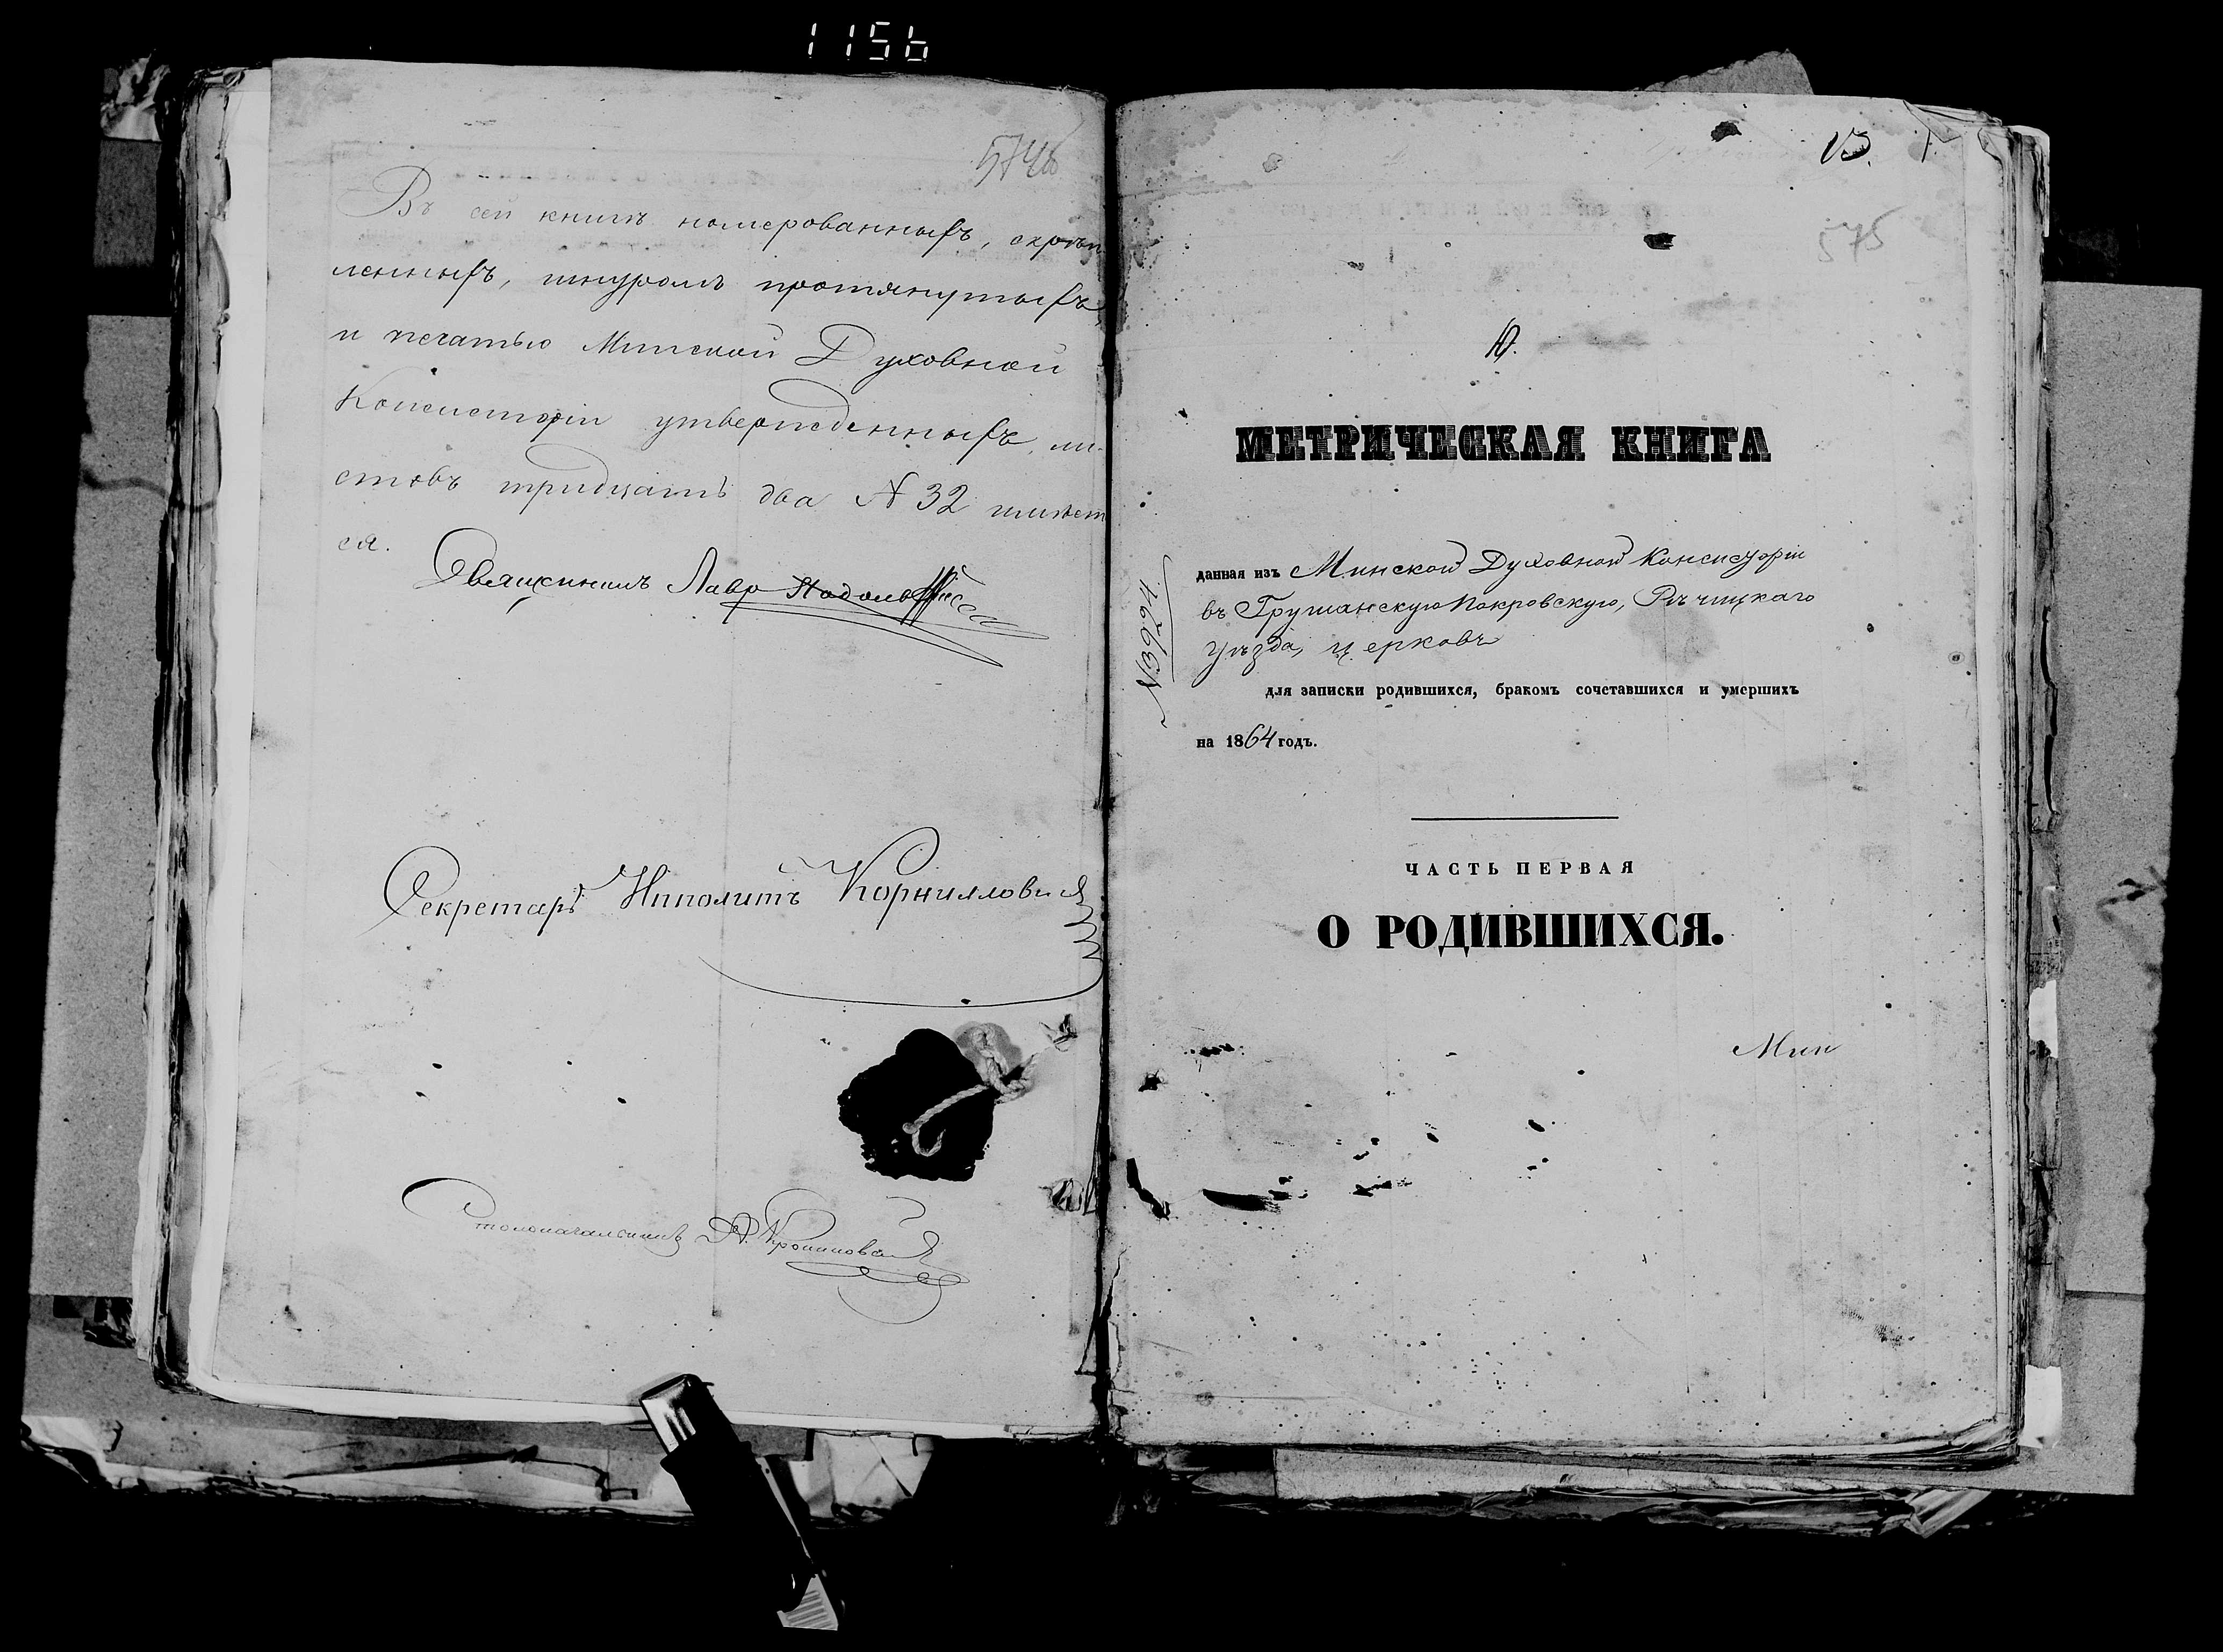 1156
574об
Въ сей книгѣ номерованныхъ, скрѣп
ленныхъ, шнуромъ протянутыхъ
и печатью Минской Духовной
Консисторіи утвержденныхъ, ли-
стовъ тридцать два № 32 имѣет
ся.
Священникъ Лавр
Секретарь Ипполитъ Корнилович
Столоначальникъ А.
1.
575
МЕТРИЧЕСКАЯ КНИГА
данная изъ Минской Духовной Консисторіи
въ Грушанскую Покровскую, Рѣчицкаго
уѣзда, церковь
№ 3924.
для записки родившихся, бракомъ сочетавшихся и умершихъ
на 1864 годъ.
ЧАСТЬ ПЕРВАЯ
О РОДИВШИХСЯ.
Мин